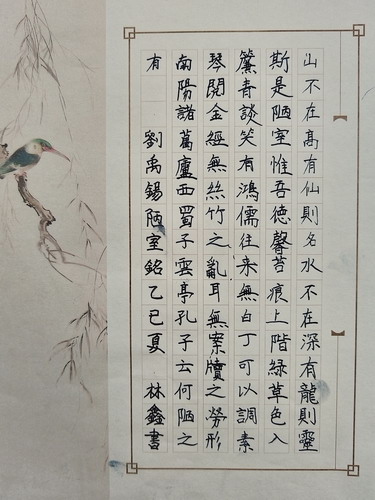 山不在高有仙則名水不在深有龍則靈
斯是陋室惟吾德馨苔痕上階綠草色入
簾青談笑有鴻儒往来無白丁可以調素
琴閱金經無絲竹之亂耳無案牘之勞形
南陽諸葛廬西蜀子雲亭孔子云何陋之
有 劉禹錫陋室銘乙巳夏 林鑫書